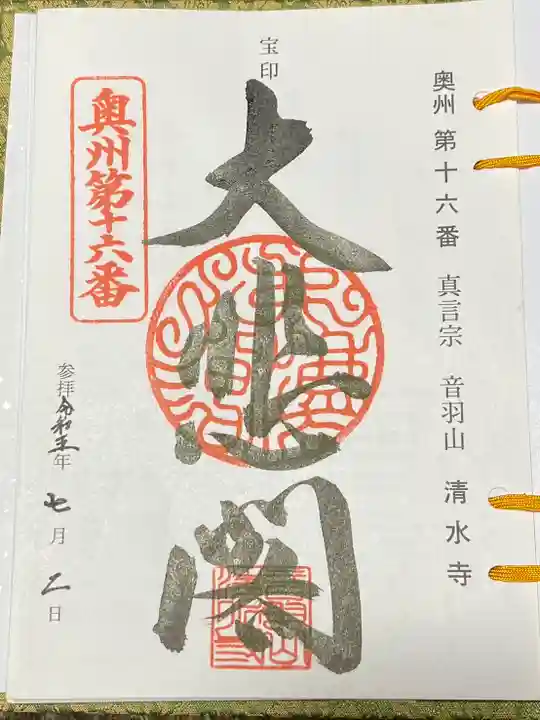 奥州 第十六番 真言宗 音羽山 清水寺
宝印
大悲閣
奥州第十六番
参拝 令和五年 七月 二日